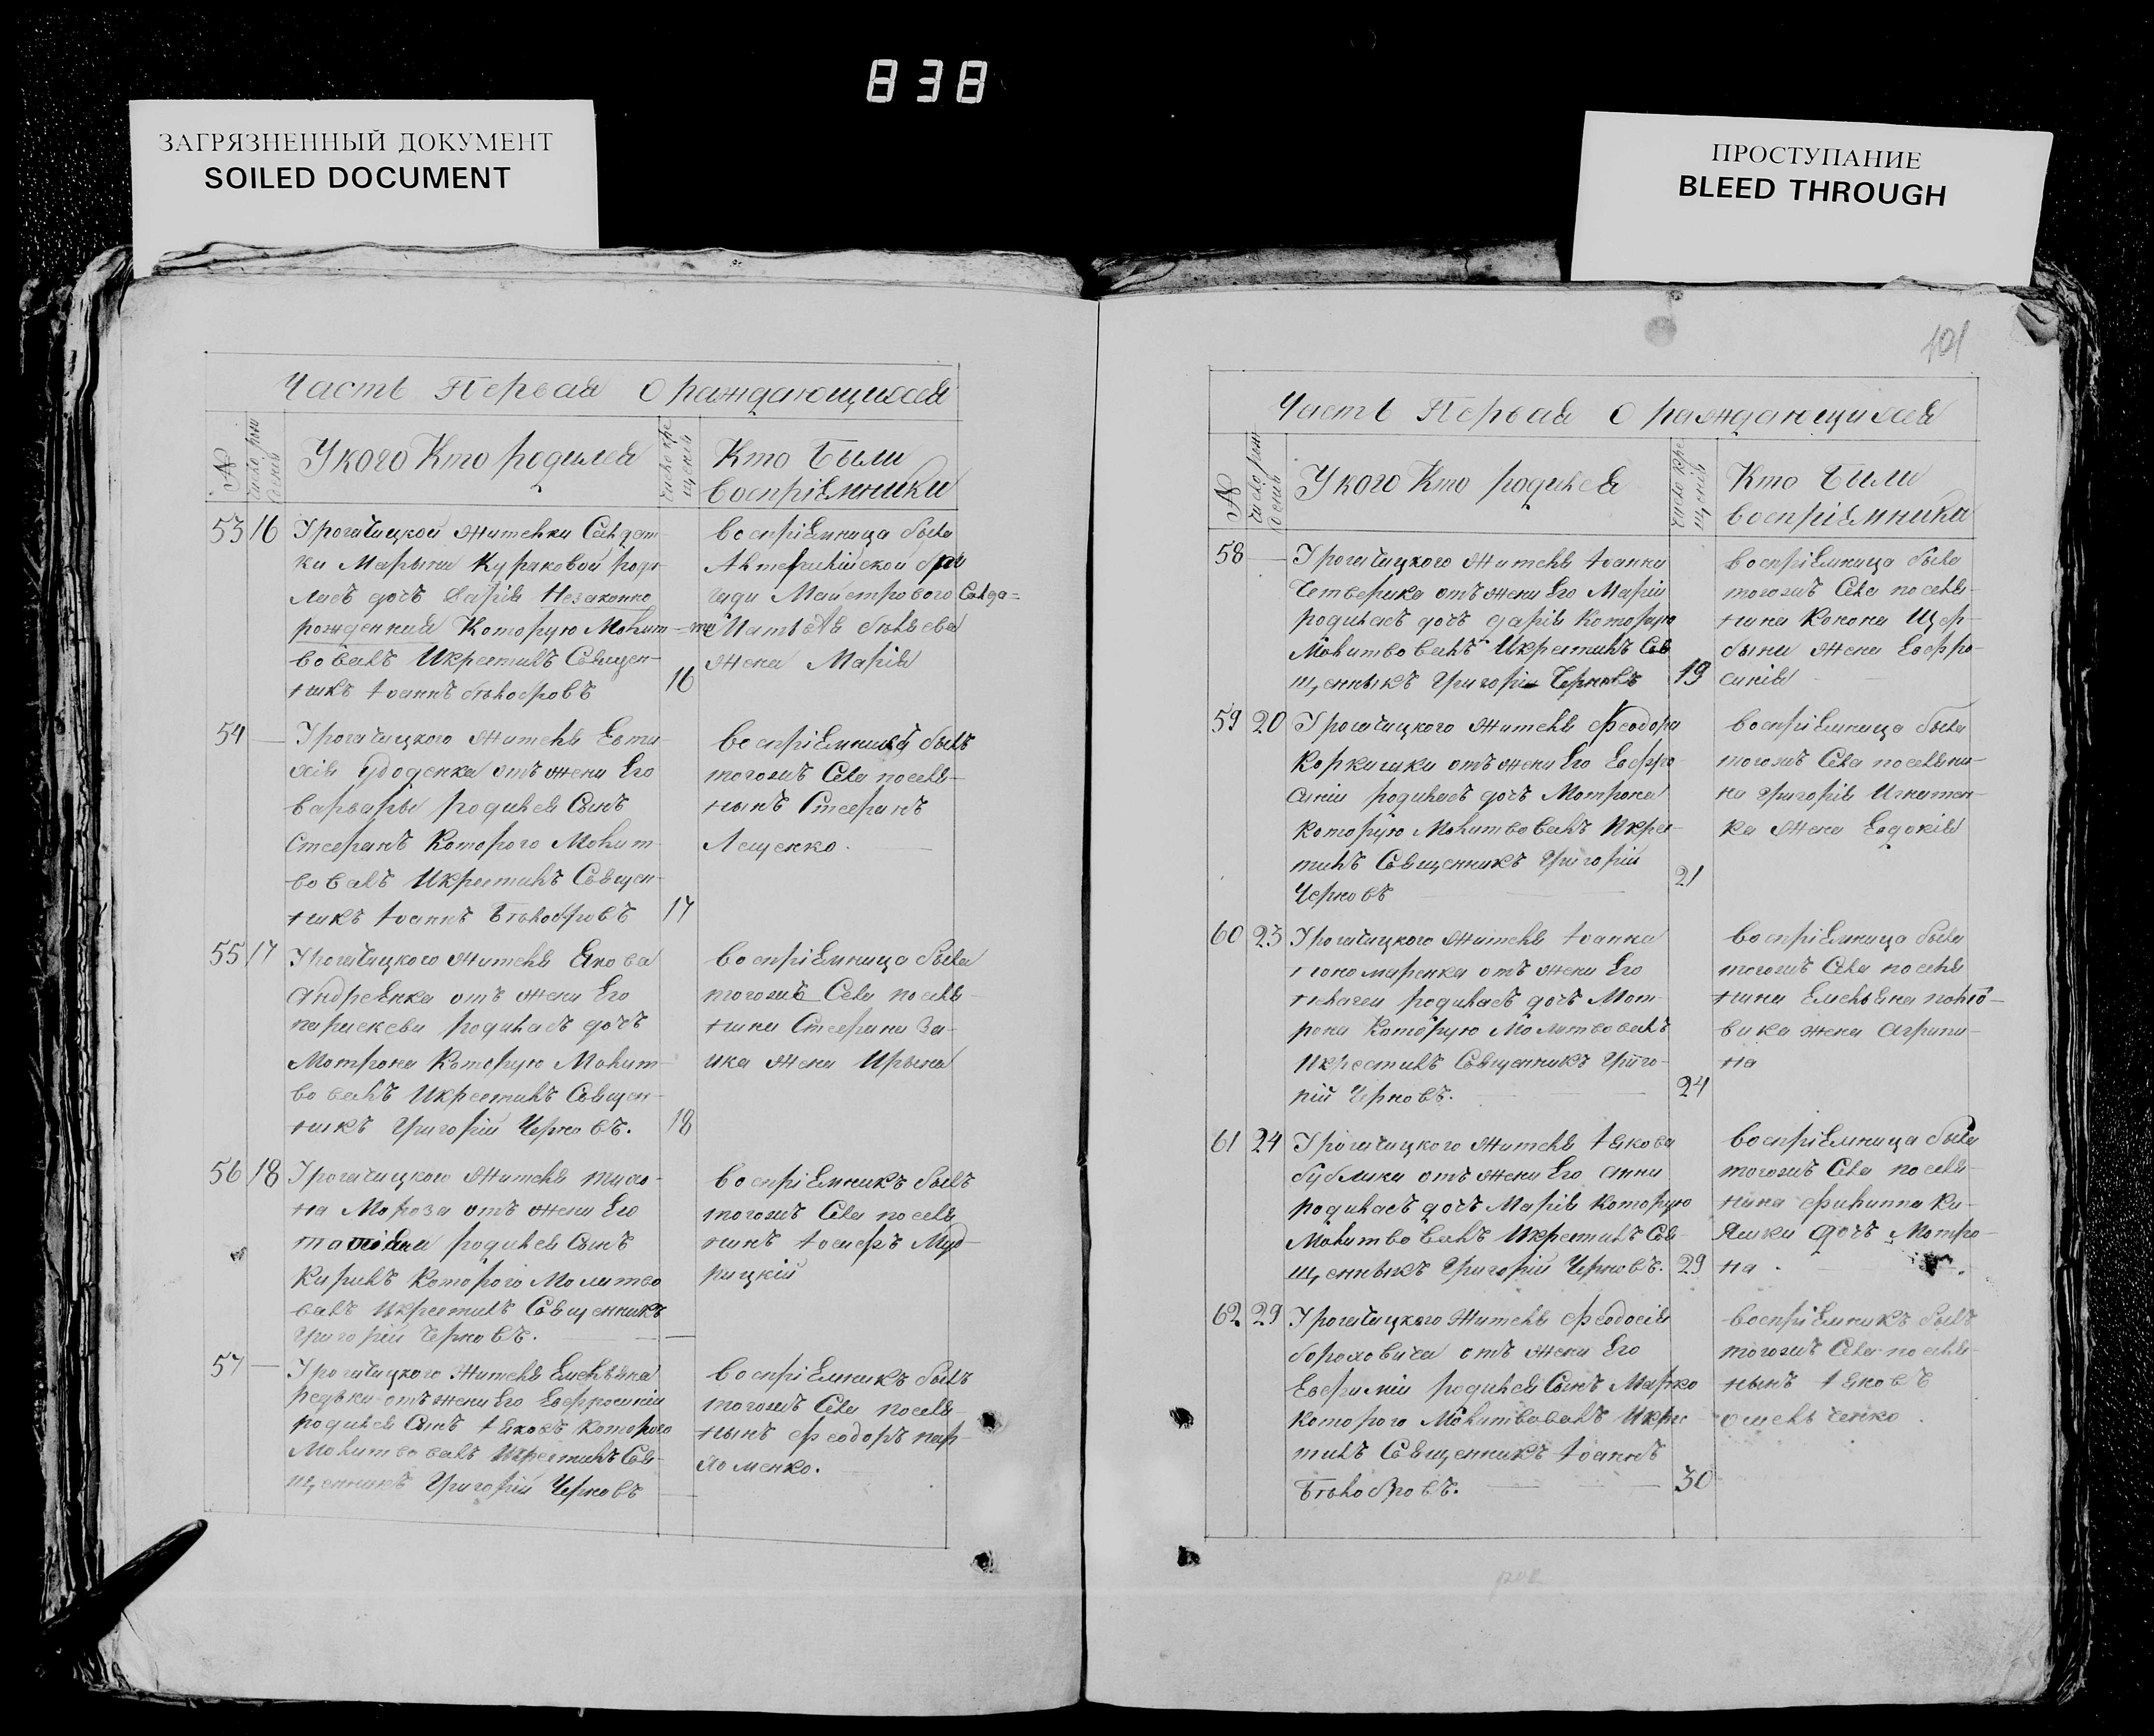 838
ЗАГРЯЗНЕННЫЙ ДОКУМЕНТ
SOILED DOCUMENT
ПРОСТУПАНИЕ
BLEED THROUGH
Часть Первая О раждающихся
№
Число рож
денія
У кого Кто родился
Число кре
щенія
Кто Были
воспріемники
53 16 У рогачицкой жителки Салдат
ки Марьи Куряковой роди
лась дочь Дарія Незаконно
рожденная Которую Молит
вовалъ И крестилъ Священ-
никъ Іоаннъ Бѣлобровъ 16
воспріемница была
Артерлійской бри
гади Майстрового Салда=
та
жена Марія
54 — У рогачицкого жителя Евти
хія Удоденка отъ жени Его
Варвары родился Сынъ
Стефанъ Которого Молит
вовалъ И крестилъ Священ-
никъ Іоаннъ Бѣлобровъ 17
воспріемникъ былъ
тогожъ Села поселя-
нынъ Стефанъ
Лещенко.
55 17 У рогачицкого жителя Якова
Андреенка отъ жени Его
параскеви родилась дочь
Мотрона Которую Молит-
вовалъ И крестилъ Священ-
никъ Григорій Черновъ. 18
воспріемница была
тогожъ Села поселя-
нина Стефана За-
ика жена Ирына
56 18 У рогачицкого жителя
на Мороза отъ жени Его
родился Сынъ
Кирилъ Которого Молитво
валъ И крестилъ Священникъ
Григорій Черновъ. —
воспріемникъ былъ
тогожъ Села поселя
нинъ Іосифъ Муд-
рицкій
57 — У рогачицкого Жителя Емельяна
редьки отъ жени Его Евфросиніи
родился Сынъ Іаковъ Которого
Молитвовалъ И крестилъ Свя-
щенникъ Григорій Черновъ —
воспріемникъ былъ
тогожъ Села поселя-
нынъ Феодоръ пар-
хоменко.
101
Часть Первая О раждающихся
№
Число рож
денія
У кого Кто родился
Число кре
щенія
Кто Были
воспріемники
58 — У рогачицкого жителя Іоанна
Четверика отъ жени Его Маріи
родилась дочь дарія Которую
Молитвовалъ И крестилъ Свя
щенныкъ Григорій Черновъ 19
воспріемница была
тогожъ Села поселя-
нина Конона Щер-
быни жена Евфро-
синія
59 20 У рогачицкого жителя Феодора
отъ жени Его Евфро-
синіи родилась дочь Мотрона
Которую Молитвовалъ И крес-
тилъ Священникъ Григорій
Черновъ 21
воспріемница была
тогожъ Села поселяни-
на Григорія Игнатен-
ка жена Евдокія
60 23 У рогачицкого жителя Іоанна
пономаренка отъ жени Его
пелагеи родилась дочь Мот-
рона Которую Молитвовалъ
И крестилъ Священникъ Григо-
рій Черновъ. 24
воспріемница была
тогожъ Села поселя
нина Емельяна полто-
вика жена Агрипи-
на
61 24 У рогачицкого жителя Іакова
бублика отъ жени Его Анни
родилась дочь Марія Которую
Молитвовалъ И крестилъ Свя-
щенныкъ Григорій Черновъ. 29
воспріемница была
тогожъ Села поселя-
нина Филиппа Ки-
яшки дочь Мотро-
на.
62 29 У рогачицкого Жителя Феодосія
бороховича отъ жени Его
Евфиміи родился Сынъ Марко
Которого Молитвовалъ И крес
тилъ Священникъ Іоаннъ
Бѣлобровъ. 30
воспріемникъ былъ
тогожъ Села поселя-
нынъ Іаковъ
омельченко.